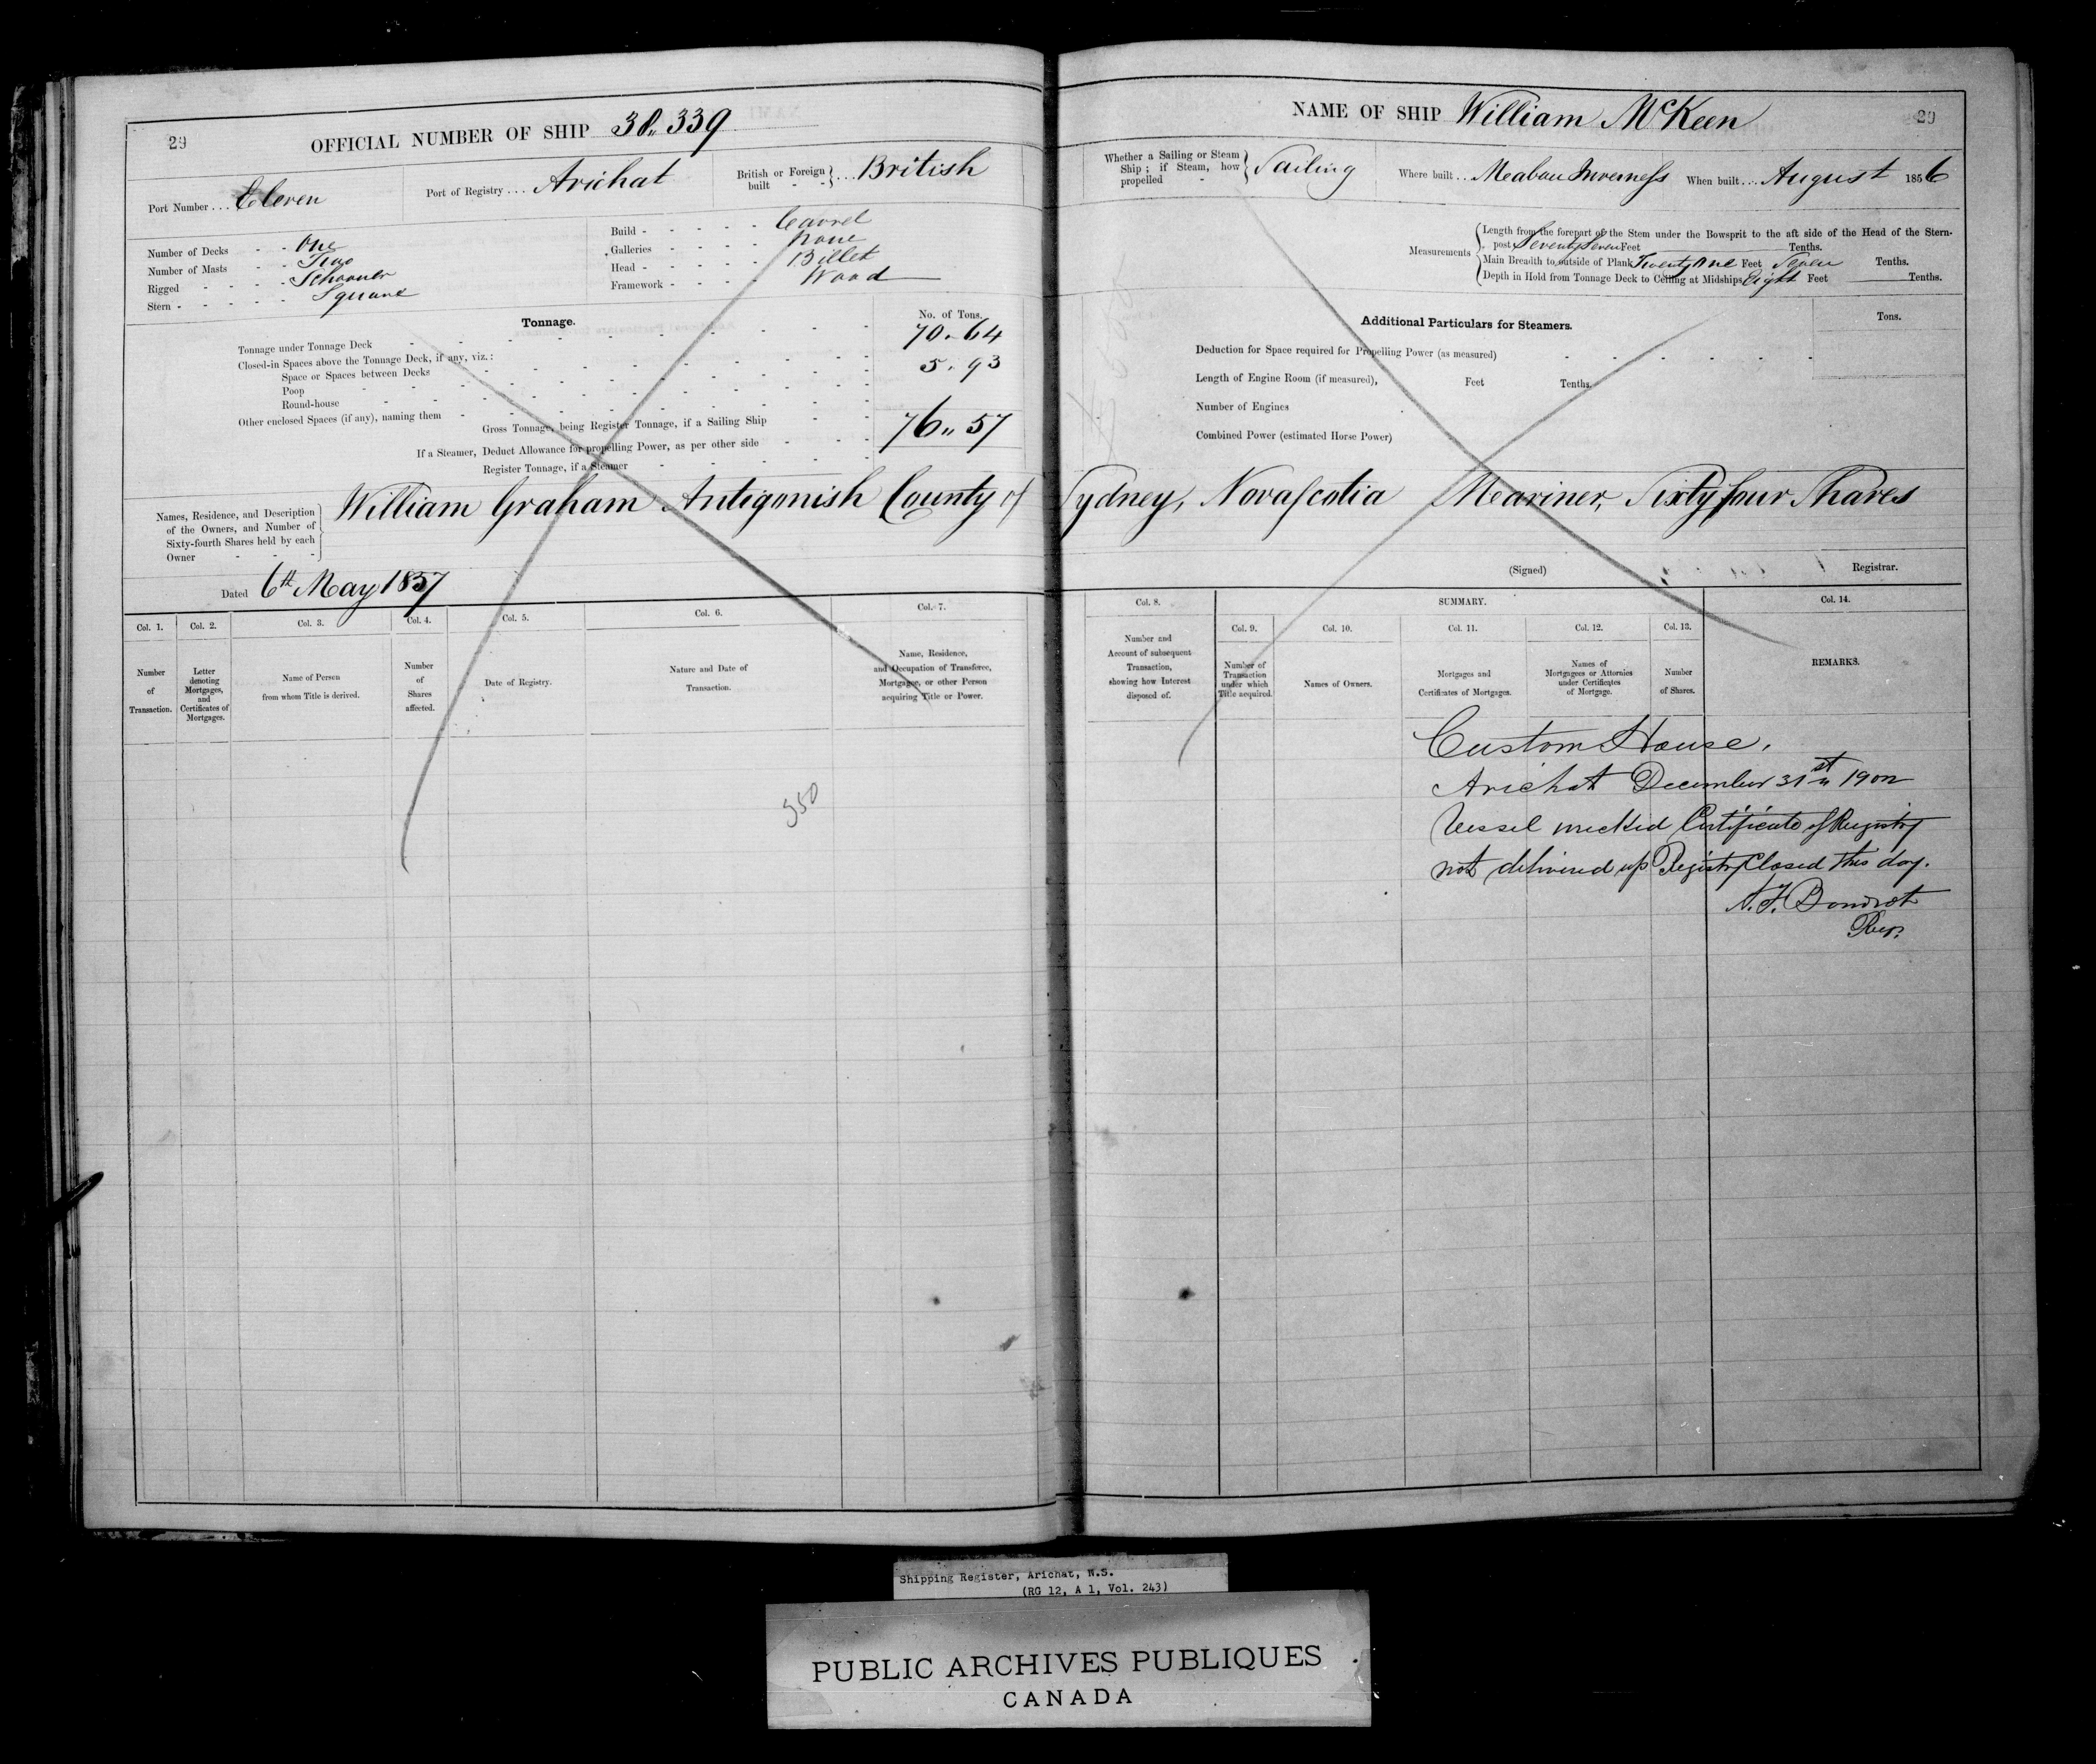 29
OFFICIAL NUMBER OF SHIP 38,,339
Port Number . . . Eleven
Port of Registry . . . Arichat
British or Foreign built - - } . . . British
Number of Decks - - One
Number of Masts - - Two
Rigged - - - - Schooner
Stern - - - - - Square
Build - - - - - Carvel
Galleries - - - - none
Head - - - - - Billet
Framework - - - - Wood
Tonnage.
No. of Tons.
Tonnage under Tonnage Deck 70.64
Closed-in Spaces above the Tonnage Deck, if any, viz.:
Space or Spaces between Decks 5.93
Poop
Round-house
Other enclosed Spaces (if any), naming them
Gross Tonnage, being Register Tonnage, if a Sailing Ship 76,,57
If a Steamer, Deduct Allowance for propelling Power, as per other side
Register Tonnage, if a Steamer
NAME OF SHIP William McKeen
29
Whether a Sailing or Steam Ship; if Steam, how propelled - } Sailing
Where built . . Mabou Inverness
When built . . . August 1856
Measurements
Length from the forepart of the Stem under the Bowsprit to the aft side of the Head of the Stern-
post Seventy Seven Feet Tenths.
Main Breadth to outside of Plank Twenty One Feet Seven Tenths.
Depth in Hold from Tonnage Deck to Ceiling at Midships Eight Feet Tenths.
Additional Particulars for Steamers.
Tons.
Deduction for Space required for Propelling Power (as measured)
Length of Engine Room (if measured), Feet Tenths.
Number of Engines
Combined Power (estimated Horse Power)
Names, Residence, and Description
of the Owners, and Number of
Sixty-fourth Shares held by each
Owner - - -
William Graham Antigonish County of Sydney, Nova Scotia Mariner, Sixty four Shares
Dated 6th May 1857
(Signed) Registrar.
Col. 1. Number of Transaction.
Col. 2. Letter denoting Mortgages, and Certificates of Mortgages.
Col. 3. Name of Person from whom Title is derived.
Col. 4. Number of Shares affected.
Col. 5. Date of Registry.
Col. 6. Nature and Date of Transaction.
Col. 7. Name, Residence, and Occupation of Transferee, Mortgagee, or other Person acquiring Title or Power.
Col. 8. Number and Account of subsequent Transaction, showing how Interest disposed of.
SUMMARY.
Col. 9. Number of Transaction under which Title acquired.
Col. 10. Names of Owners.
Col. 11. Mortgages and Certificates of Mortgages.
Col. 12. Names of Mortgagees or Attornies under Certificates of Mortgage.
Col. 13. Number of Shares.
Col. 14. REMARKS.
350
Custom House,
Arichat December 31st 1902
Vessel wrecked Certificate of Registry
not delivered up Registry Closed this day.
Regr
Shipping Register, Arichat, N.S.
(RG 12, A 1, Vol. 243)
PUBLIC ARCHIVES PUBLIQUES
CANADA